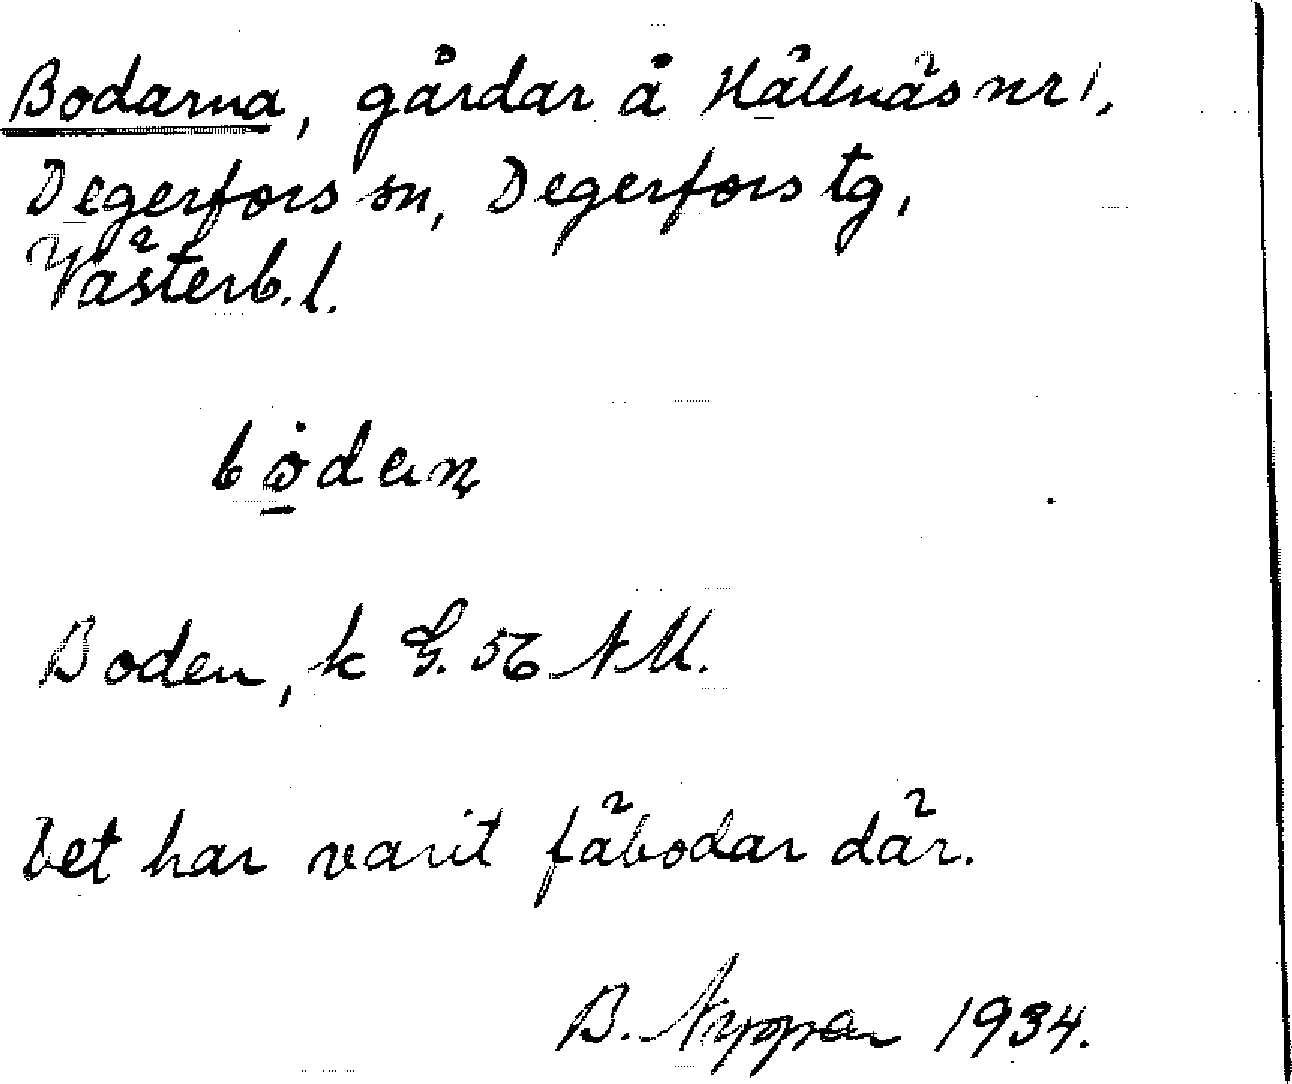 Bodarna, gårdar å Hällnäs nr 1,
Degerfors sn, Degerfors tg,
Västerb. l.
Boden, k G. 56 NM.
Det har varit fäbodar där.
B. 1934.